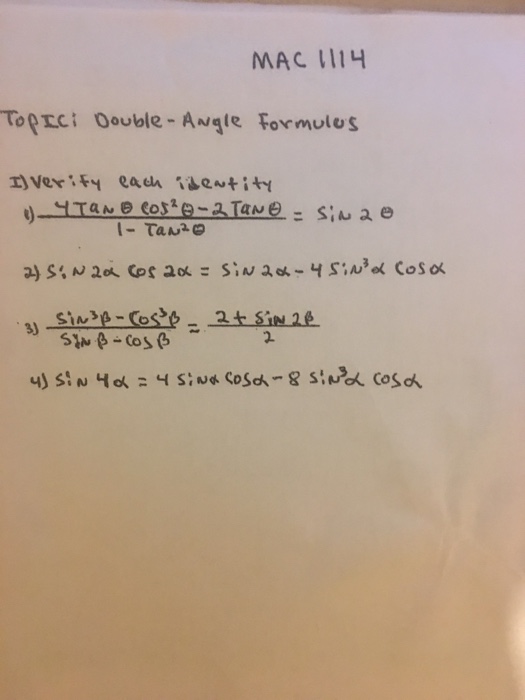 MAC 1114
Topic: Double-Angle Formulas
I) Verify each identity
1) (4 Tan θ cos²θ - 2 Tan θ) / (1 - Tan²θ) = Sin 2θ
2) Sin 2α Cos 2α = Sin 2α - 4 Sin³α Cosα
3) (Sin³β - Cos³β) / (Sin β - Cos β) = (2 + Sin 2β) / 2
4) Sin 4α = 4 Sinα Cosα - 8 Sin³α Cosα